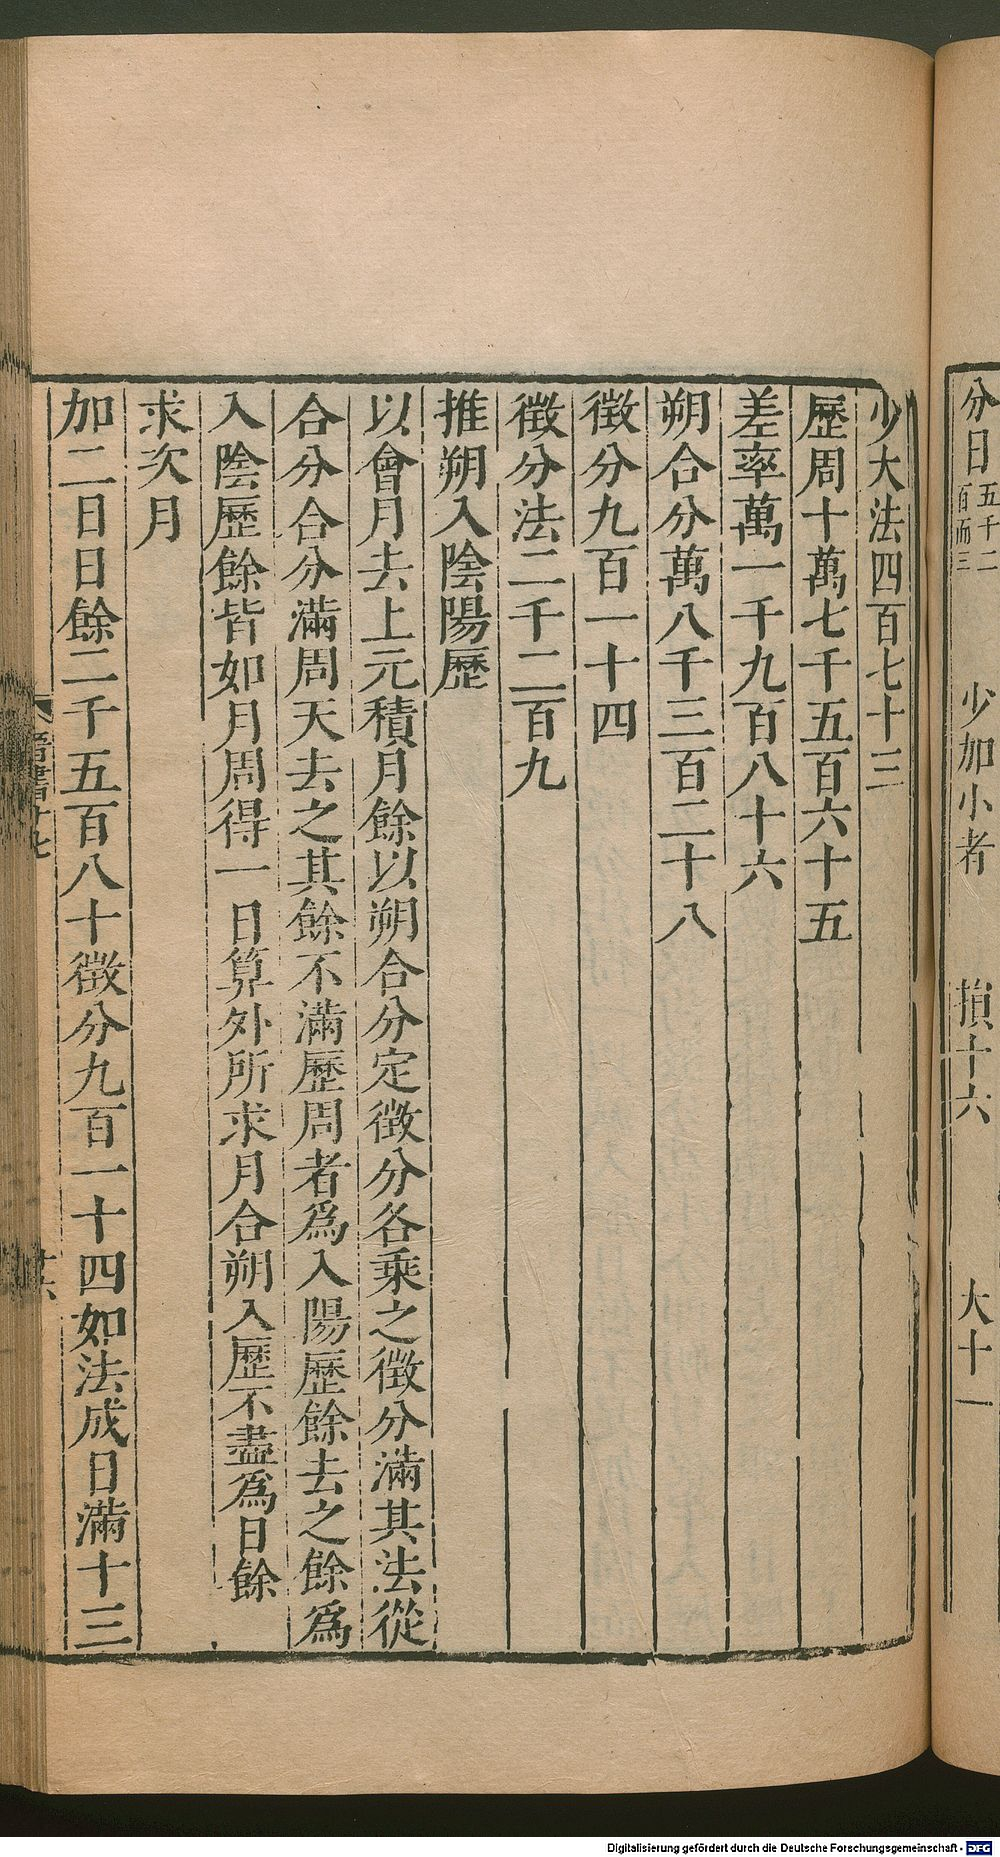 分日五千二百而三 少加小者 損十六 大十一
少大法四百七十三
歷周十萬七千五百六十五
差率萬一千九百八十六
朔合分萬八千三百二十八
微分九百一十四
微分法二千二百九
推朔入陰陽歷
以會月去上元積月餘以朔合分定微分各乘之微分滿其法從
合分合分滿周天去之其餘不滿歷周者爲入陽歷餘去之餘爲
入陰歷餘皆如月周得一日算外所求月合朔入歷不盡爲日餘
求次月
加二日日餘二千五百八十微分九百一十四如法成日滿十三
晉書十七
十六
Digitalisierung gefördert durch die Deutsche Forschungsgemeinschaft - DFG